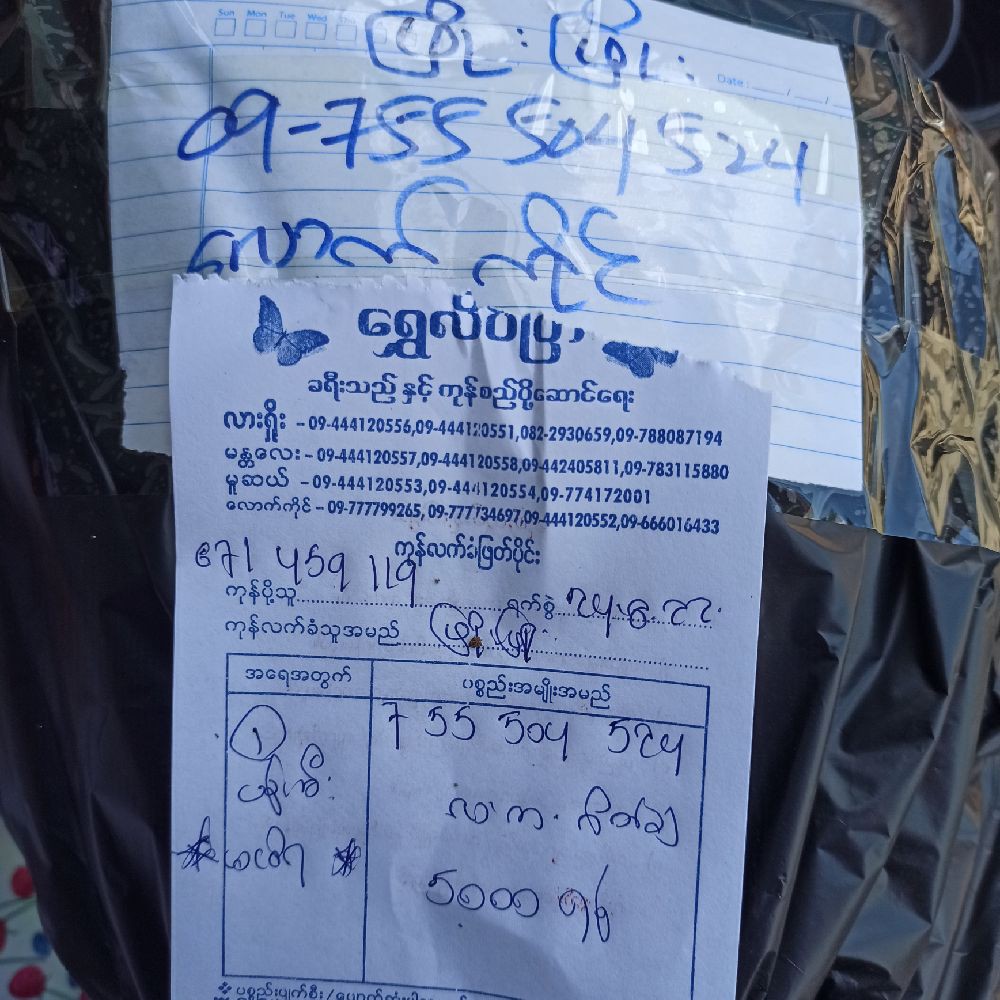 Sun Mon Tue Wed
Date :
ဖြိုး ဖြိုး
09-755 504 524
လောက်ကိုင်
ရွှေလိပ်ပြာ
ခရီးသည် နှင့် ကုန်စည်ပို့ဆောင်ရေး
လားရှိုး - 09-444120556,09-444120551,082-2930659,09-788087194
မန္တလေး - 09-444120557,09-444120558,09-442405811,09-783115880
မူဆယ် - 09-444120553,09-444120554,09-774172001
လောက်ကိုင် - 09-777799265, 09-777734697,09-444120552,09-666016433
ကုန်လက်ခံဖြတ်ပိုင်း
459 119
ကုန်ပို့သူ ရက်စွဲ
ကုန်လက်ခံသူအမည် ဖြိုးဖြိုး
အရေအတွက် ပစ္စည်းအမျိုးအမည်
၁ 755 504 524
5000